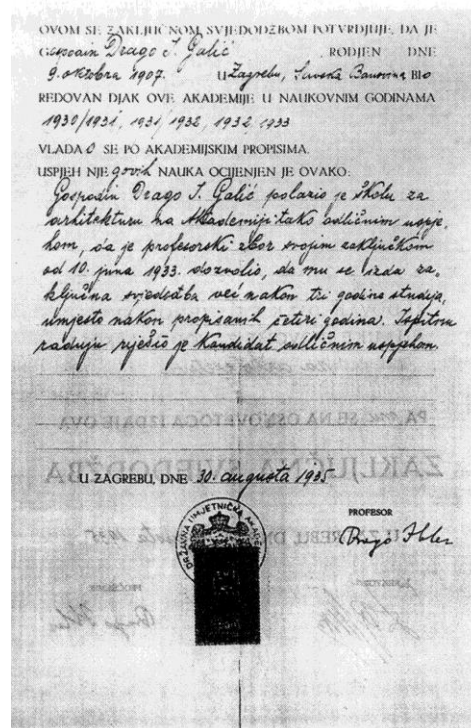 OVOM SE ZAKLJUČNOM SVJEDODŽBOM POTVRDJUJE, DA JE
Gospodin Drago I. Galić RODJEN DNE
9. oktobra 1907. U Zagrebu, Savska Banovina BIO
REDOVAN DJAK OVE AKADEMIJE U NAUKOVNIM GODINAMA
1930/1931, 1931/1932, 1932/1933
VLADAO SE PO AKADEMIJSKIM PROPISIMA.
USPJEH NJEgovih NAUKA OCIJENJEN JE OVAKO:
Gospodin Drago I. Galić polazio je školu za
arhitekturu na Akademiji tako odličnim uspje-
hom, da je profesorski zbor svojim zaključkom
od 10. juna 1933. dozvolio, da mu se izda za-
ključna svjedodžba već nakon tri godine studija,
umjesto nakon propisanih četiri godina. Ispitnu
radnju riješio je kandidat odličnim uspjehom.
PA mu SE NA OSNOVI TOGA IZDAJE OVA
ZAKLJUČNA SVJEDODŽBA
U ZAGREBU, DNE 30. augusta 1935
PROFESOR
Drago Ibler
DRŽAVNA UMJETNIČKA AKADEMIJA